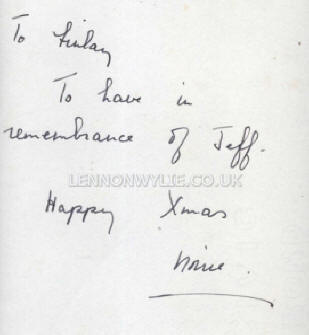 To Finlay
To have in
remembrance of Jeff.
LENNONWYLIE.CO.UK
Happy Xmas